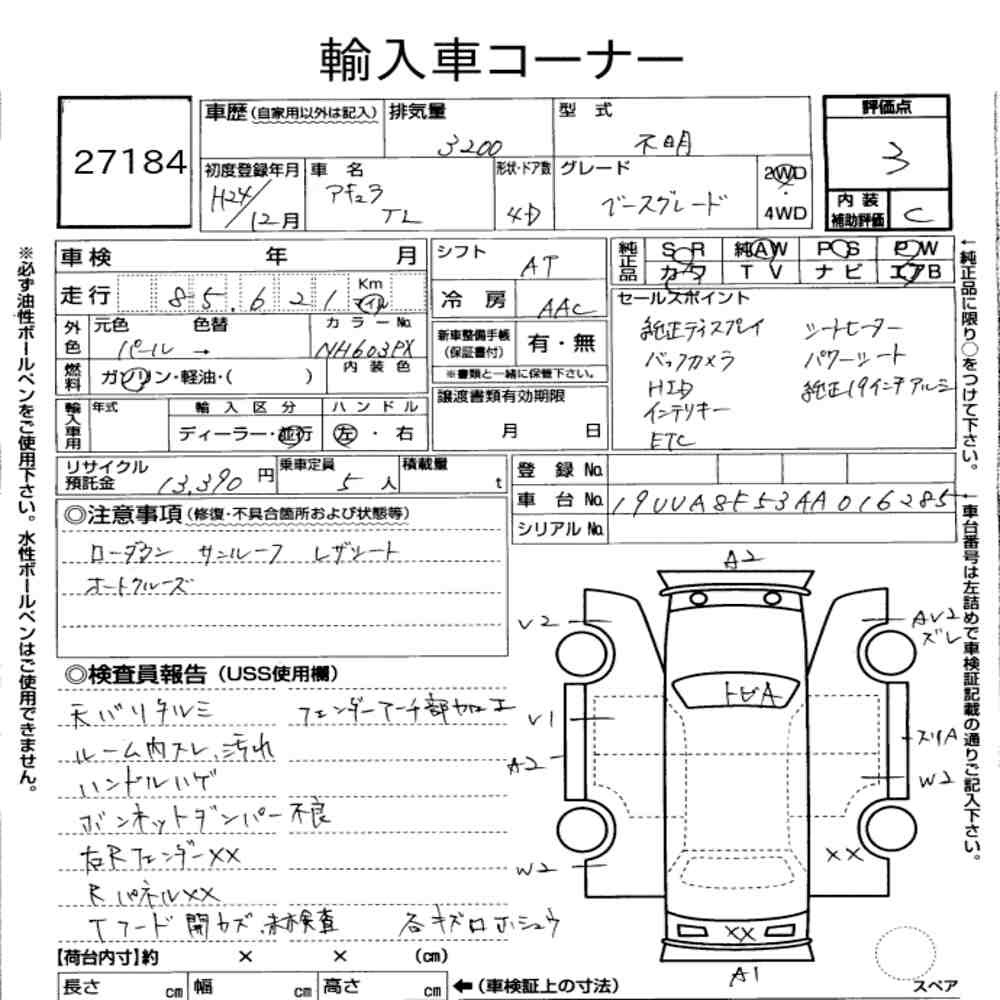 輸入車コーナー
27184
車歴(自家用以外は記入)
排気量 3200
型式 不明
評価点 3
初度登録年月 H24/12月
車名 アキュラ TL
形状・ドア数 4D
グレード ベースグレード
2WD
4WD
内装補助評価 C
車検 年 月
シフト AT
純正品 S・R 純AW P・S P・W
カワ TV ナビ エアB
走行 85,621 Km マイル
冷房 AAC
セールスポイント
純正ディスプレイ シートヒーター
バックカメラ パワーシート
HID 純正19インチアルミ
インテリキー
ETC
外色 元色 色替 カラーNo.
パール → NH603PX
新車整備手帳(保証書付) 有・無
※書類と一緒に保管下さい。
燃料 ガソリン・軽油・( )
内装色
譲渡書類有効期限
月 日
輸入車用 年式 輸入区分 ハンドル
ディーラー・並行 左・右
リサイクル預託金 13,390円
乗車定員 5人
積載量 t
登録No.
車台No. 19UUA8F53AA016285
シリアルNo.
◎注意事項(修復・不具合箇所および状態等)
ローダウン サンルーフ レザシート
オートクルーズ
◎検査員報告(USS使用欄)
天バリタルミ フェンダーアーチ部加工
ルーム内スレ、汚れ
ハンドルハゲ
ボンネットダンパー不良
右RフェンダーXX
RパネルXX
Tフード開カズ、未検査 各キズロホシュウ
A2
V2
AV2
ズレ
トビA
V1
A2
スリA
W2
W2
XX
XX
A1
スペア
【荷台内寸】約 × × (cm)
長さ cm 幅 cm 高さ cm
←(車検証上の寸法)
※必ず油性ボールペンをご使用下さい。水性ボールペンはご使用できません。
←純正品に限り○をつけて下さい。
←車台番号は左詰めで車検証記載の通りご記入下さい。